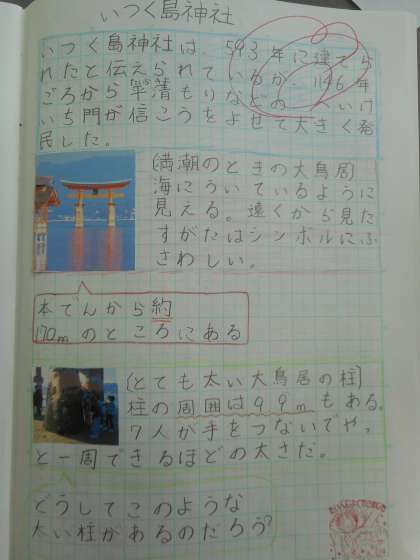 いつく島神社
いつく島神社は、593年に建てら
れたと伝えられているが、1146年
ごろから平清もりなどの、へいけ
いち門が信こうをよせて大きく発
民した。
(満潮のときの大鳥居)
海にういているように
見える。遠くから見た
すがたはシンボルにふ
さわしい。
本でんから約
170mのところにある
(とても太い大鳥居の柱)
柱の周囲は9.9mもある。
7人が手をつないでやっ
と一周できるほどの太さだ。
どうしてこのような
太い柱があるのだろう?